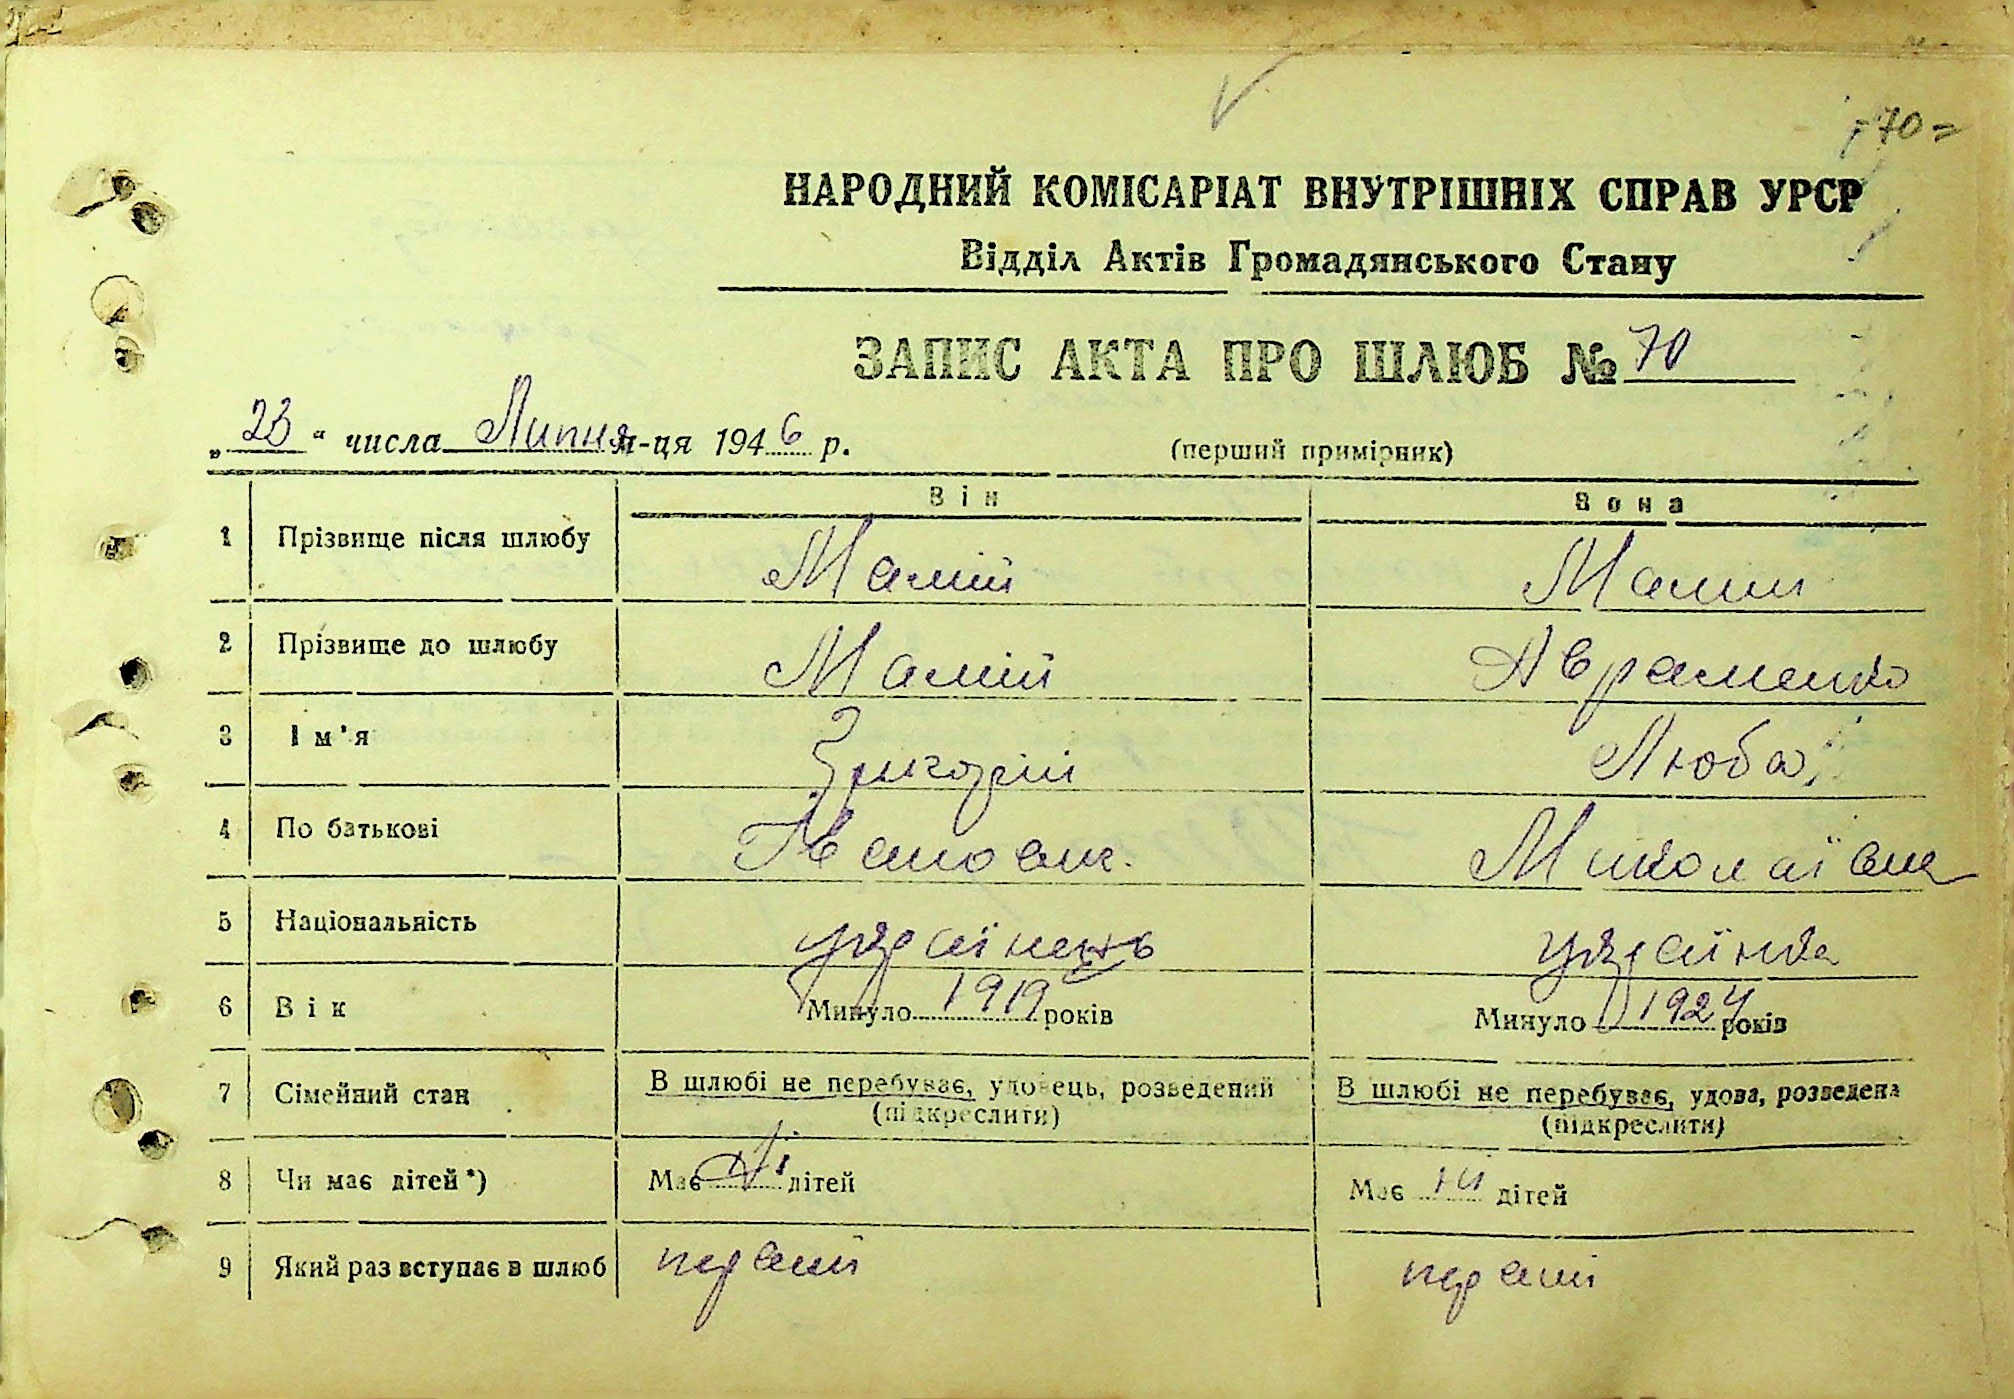 70
НАРОДНИЙ КОМІСАРІАТ ВНУТРІШНІХ СПРАВ УРСР
Відділ Актів Громадянського Стану
ЗАПИС АКТА ПРО ШЛЮБ № 70
„23" числа Липня м-ця 1946 р. (перший примірник)
Він Вона
1 Прізвище після шлюбу Мамій Мамий
2 Прізвище до шлюбу Мамій Авраменко
3 Ім'я Григорій Люба
4 По батькові Іванович. Миколаївна
5 Національність українець українка
6 Вік Минуло 1919 років Минуло 1924 років
7 Сімейний стан В шлюбі не перебуває, удовець, розведений В шлюбі не перебуває, удова, розведена
(підкреслити) (підкреслити)
8 Чи має дітей*) Має ні дітей Має ни дітей
9 Який раз вступає в шлюб перший перший